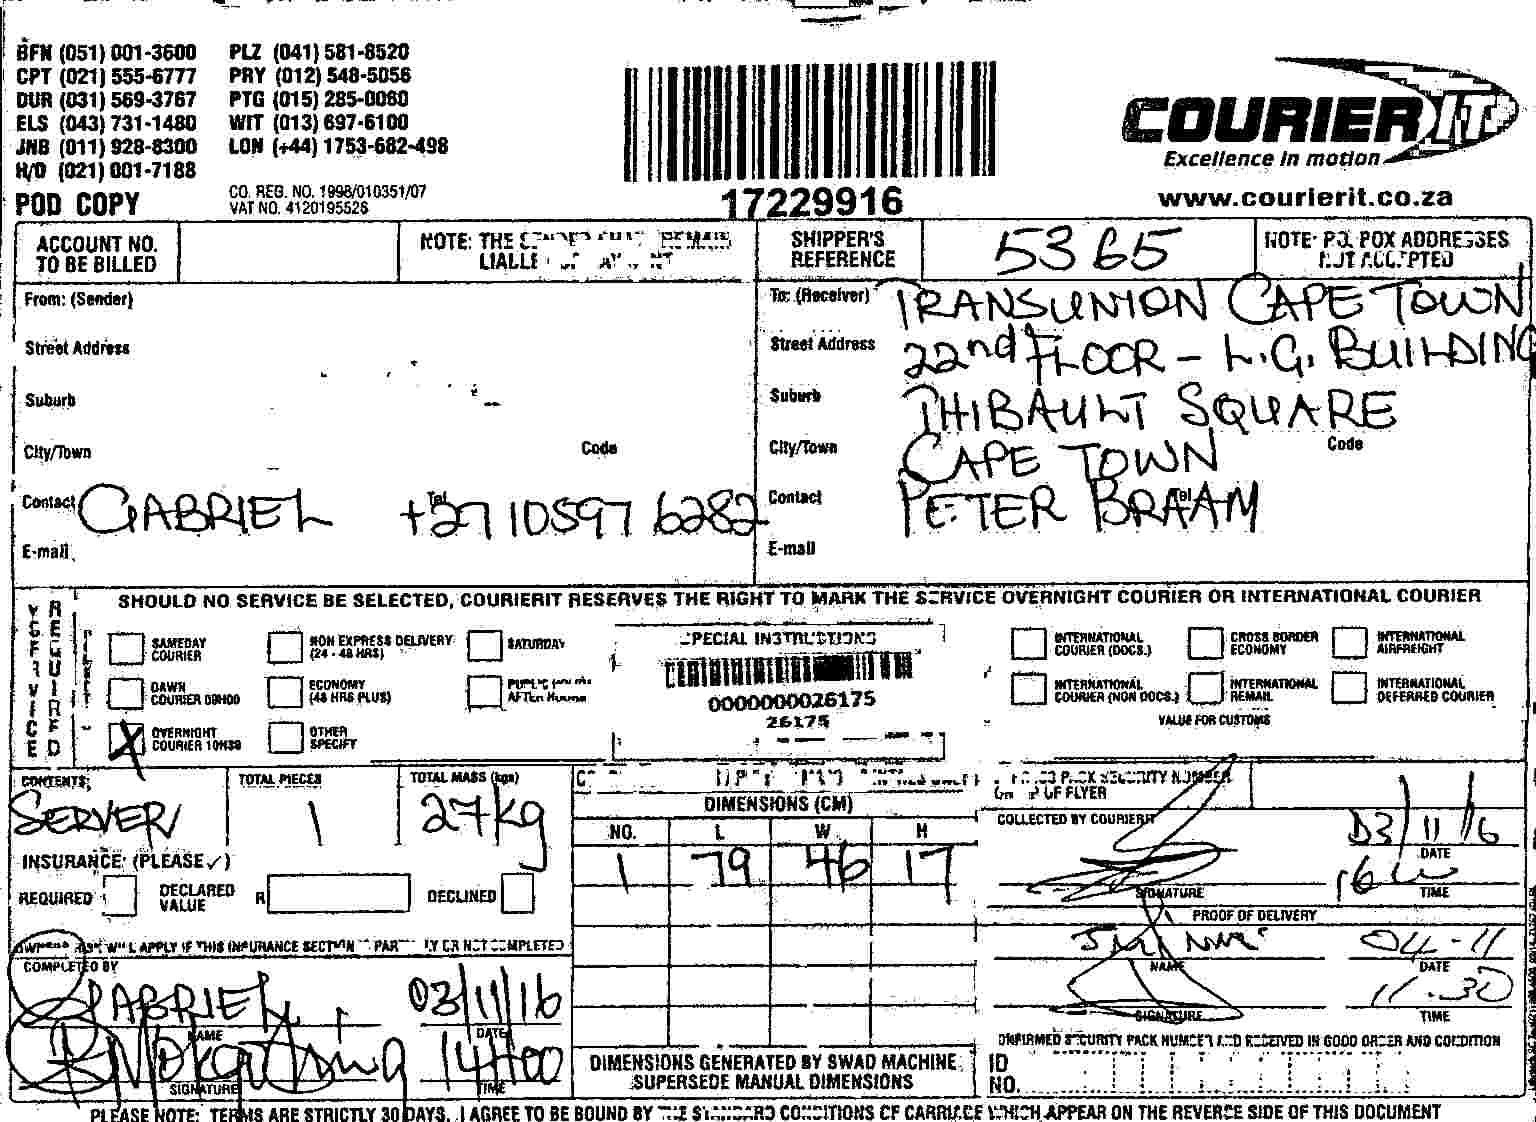 BFN (051) 001-3600 PLZ (041) 581-8520
CPT (021) 555-6777 PRY (012) 548-5056
DUR (031) 569-3767 PTG (015) 285-0060
ELS (043) 731-1480 WIT (013) 697-6100
JNB (011) 928-8300 LON (+44) 1753-682-498
H/O (021) 001-7188
POD COPY
CO. REG. NO. 1998/010351/07
VAT NO. 4120195526
17229916
COURIER IT
Excellence in motion
www.courierit.co.za
ACCOUNT NO.
TO BE BILLED
NOTE: THE SENDER SHALL REMAIN
SHIPPER'S
REFERENCE
5365
NOTE: P.O. BOX ADDRESSES
NOT ACCEPTED
From: (Sender)
Street Address
Suburb
City/Town Code
Contact GABRIEL Tel +27 10597 6282
E-mail
To: (Receiver) TRANSUNION CAPE TOWN
Street Address 22nd FLOOR - L.G. BUILDING
Suburb THIBAULT SQUARE
City/Town CAPE TOWN Code
Contact PETER BRAAM Tel
E-mail
SERVICE
REQUIRED
SHOULD NO SERVICE BE SELECTED, COURIERIT RESERVES THE RIGHT TO MARK THE SERVICE OVERNIGHT COURIER OR INTERNATIONAL COURIER
SAMEDAY
COURIER
NON EXPRESS DELIVERY
(24 - 48 HRS)
SATURDAY
DAWN
COURIER 09H00
ECONOMY
(48 HRS PLUS)
PUBLIC
AFTER HOURS
X OVERNIGHT
COURIER 10H30
OTHER
SPECIFY
SPECIAL INSTRUCTIONS
0000000026175
26175
INTERNATIONAL
COURIER (DOCS.)
CROSS BORDER
ECONOMY
INTERNATIONAL
AIRFREIGHT
INTERNATIONAL
COURIER (NON DOCS.)
INTERNATIONAL
REMAIL
INTERNATIONAL
DEFERRED COURIER
VALUE FOR CUSTOMS
CONTENTS: TOTAL PIECES TOTAL MASS (kgs)
SERVER 1 27kg
INSURANCE: (PLEASE ✓)
REQUIRED DECLARED
VALUE R DECLINED
APPLY IF THIS INSURANCE SECTION NOT COMPLETED
COMPLETED BY
GABRIEL 03/11/16
NAME DATE
14H00
SIGNATURE TIME
DIMENSIONS (CM)
NO. L W H
1 79 46 17
DIMENSIONS GENERATED BY SWAD MACHINE
SUPERSEDE MANUAL DIMENSIONS
SECURITY NUMBER
OF FLYER
COLLECTED BY COURIERIT
03/11/16
DATE
SIGNATURE TIME
PROOF OF DELIVERY
04-11
NAME DATE
11.30
SIGNATURE TIME
CONFIRMED SECURITY PACK NUMBER AND RECEIVED IN GOOD ORDER AND CONDITION
ID
NO.
PLEASE NOTE: TERMS ARE STRICTLY 30 DAYS. I AGREE TO BE BOUND BY THE STANDARD CONDITIONS OF CARRIAGE WHICH APPEAR ON THE REVERSE SIDE OF THIS DOCUMENT